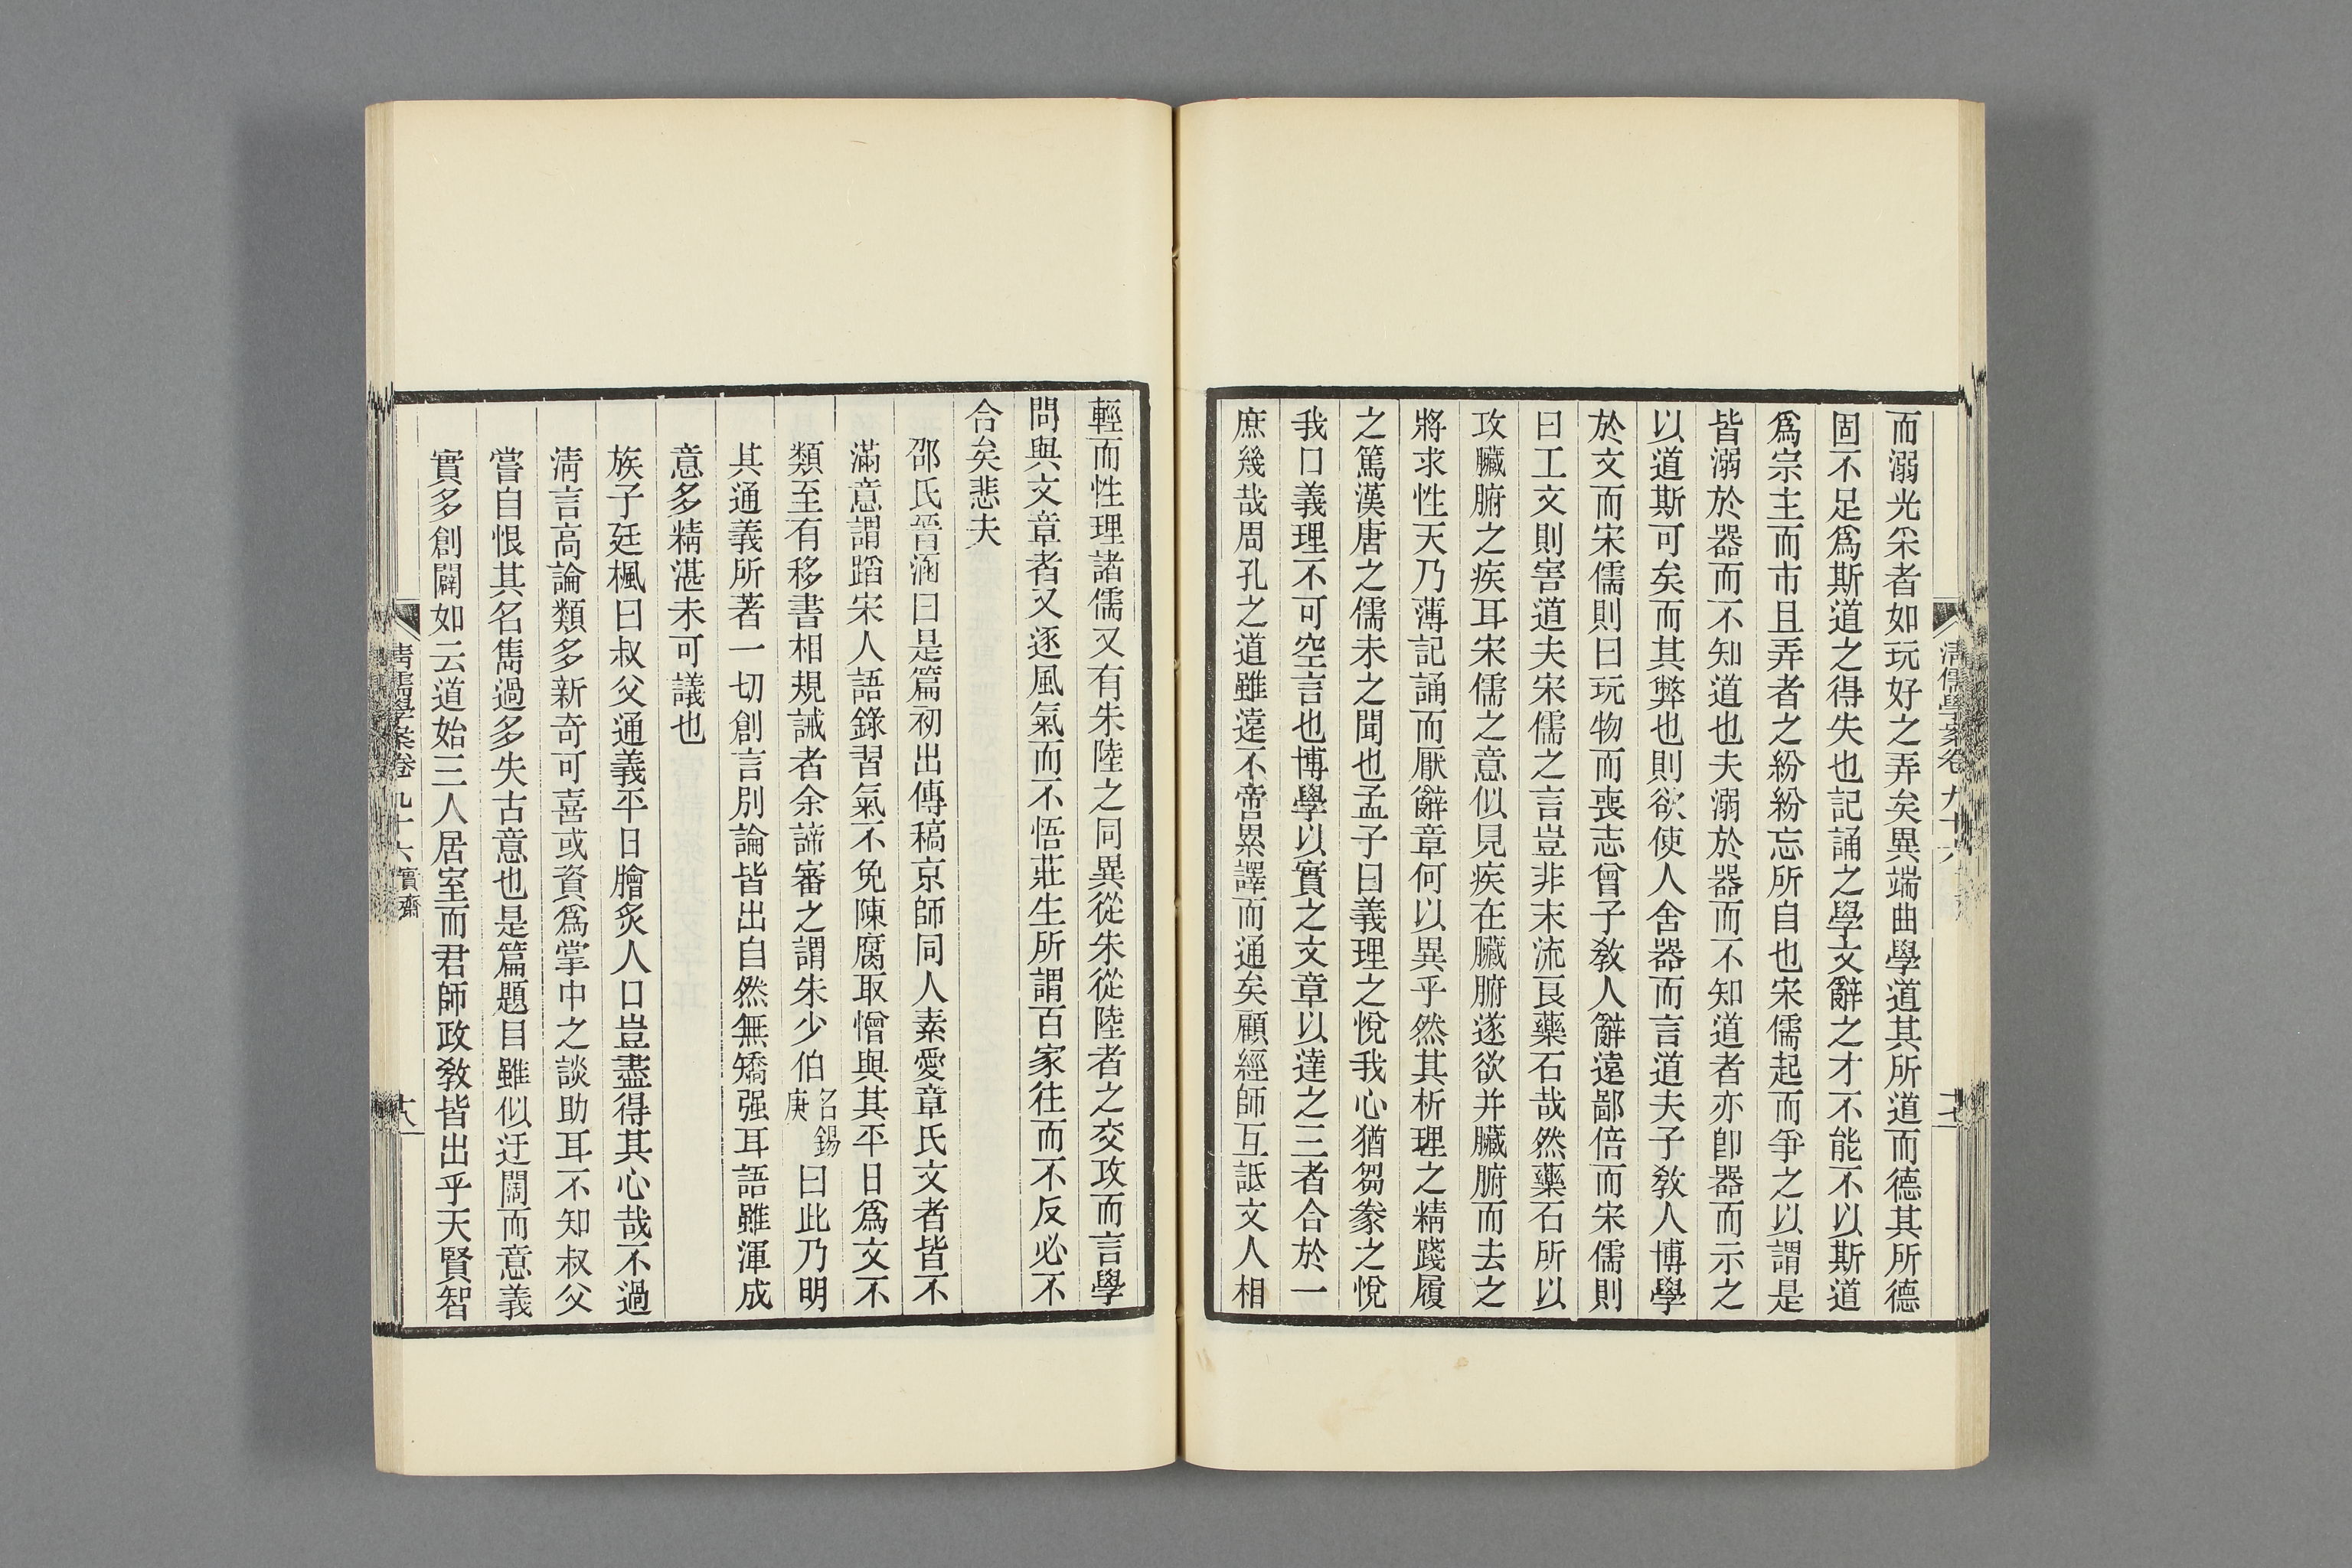 而溺光采者如玩好之弄矣異端曲學道其所道而德其所德
固不足爲斯道之得失也記誦之學文辭之才不能不以斯道
爲宗主而市且弄者之紛紛忘所自也宋儒起而爭之以謂是
皆溺於器而不知道也夫溺於器而不知道者亦卽器而示之
以道斯可矣而其弊也則欲使人舍器而言道夫子敎人博學
於文而宋儒則曰玩物而喪志曾子敎人辭遠鄙倍而宋儒則
曰工文則害道夫宋儒之言豈非末流良藥石哉然藥石所以
攻臟腑之疾耳宋儒之意似見疾在臟腑遂欲并臟腑而去之
將求性天乃薄記誦而厭辭章何以異乎然其析理之精踐履
之篤漢唐之儒未之聞也孟子曰義理之悅我心猶芻豢之悅
我口義理不可空言也博學以實之文章以達之三者合於一
庶幾哉周孔之道雖遠不啻累譯而通矣顧經師互詆文人相
清儒學案卷九十六
十七
輕而性理諸儒又有朱陸之同異從朱從陸者之交攻而言學
問與文章者又逐風氣而不悟莊生所謂百家往而不反必不
合矣悲夫
邵氏晉涵曰是篇初出傳稿京師同人素愛章氏文者皆不
滿意謂蹈宋人語錄習氣不免陳腐取憎與其平日爲文不
類至有移書相規誡者余諦審之謂朱少伯名錫庚曰此乃明
其通義所著一切創言別論皆出自然無矯强耳語雖渾成
意多精湛未可議也
族子廷楓曰叔父通義平日膾炙人口豈盡得其心哉不過
淸言高論類多新奇可喜或資爲掌中之談助耳不知叔父
嘗自恨其名雋過多失古意也是篇題目雖似迂闊而意義
實多創闢如云道始三人居室而君師政敎皆出乎天賢智
清儒學案卷九十六實齋
十八